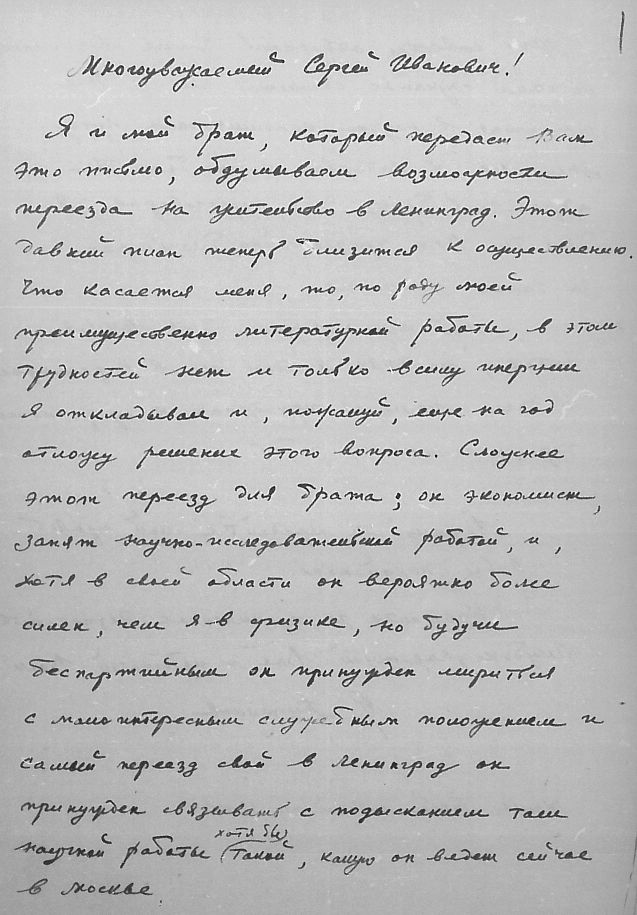 Многоуважаемый Сергей Иванович!
Я и мой брат, который передаст Вам
это письмо, обдумываем возможности
переезда на жительство в Ленинград. Этот
давний план теперь близится к осуществлению.
Что касается меня, то, по роду моей
преимущественно литературной работы, в этом
трудностей нет и только в силу инерции
я откладывал и, пожалуй, еще на год
отложу решение этого вопроса. Сложнее
этот переезд для брата; он экономист,
занят научно-исследовательской работой, и,
хотя в своей области он вероятно более
силен, чем я - в физике, но будучи
беспартийным он принужден мириться
с мало интересным служебным положением и
самый переезд свой в Ленинград он
принужден связывать с подысканием там
научной работы (хотя бы) такой, какую он ведет сейчас
в Москве.